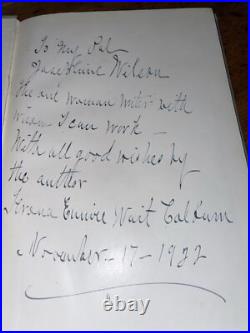 To my Pal
Josephine Wilson
the one woman writer with
whom I can work —
With all good wishes by
the author
Frona Eunice Wait Colburn
November - 17 - 1922
ebay